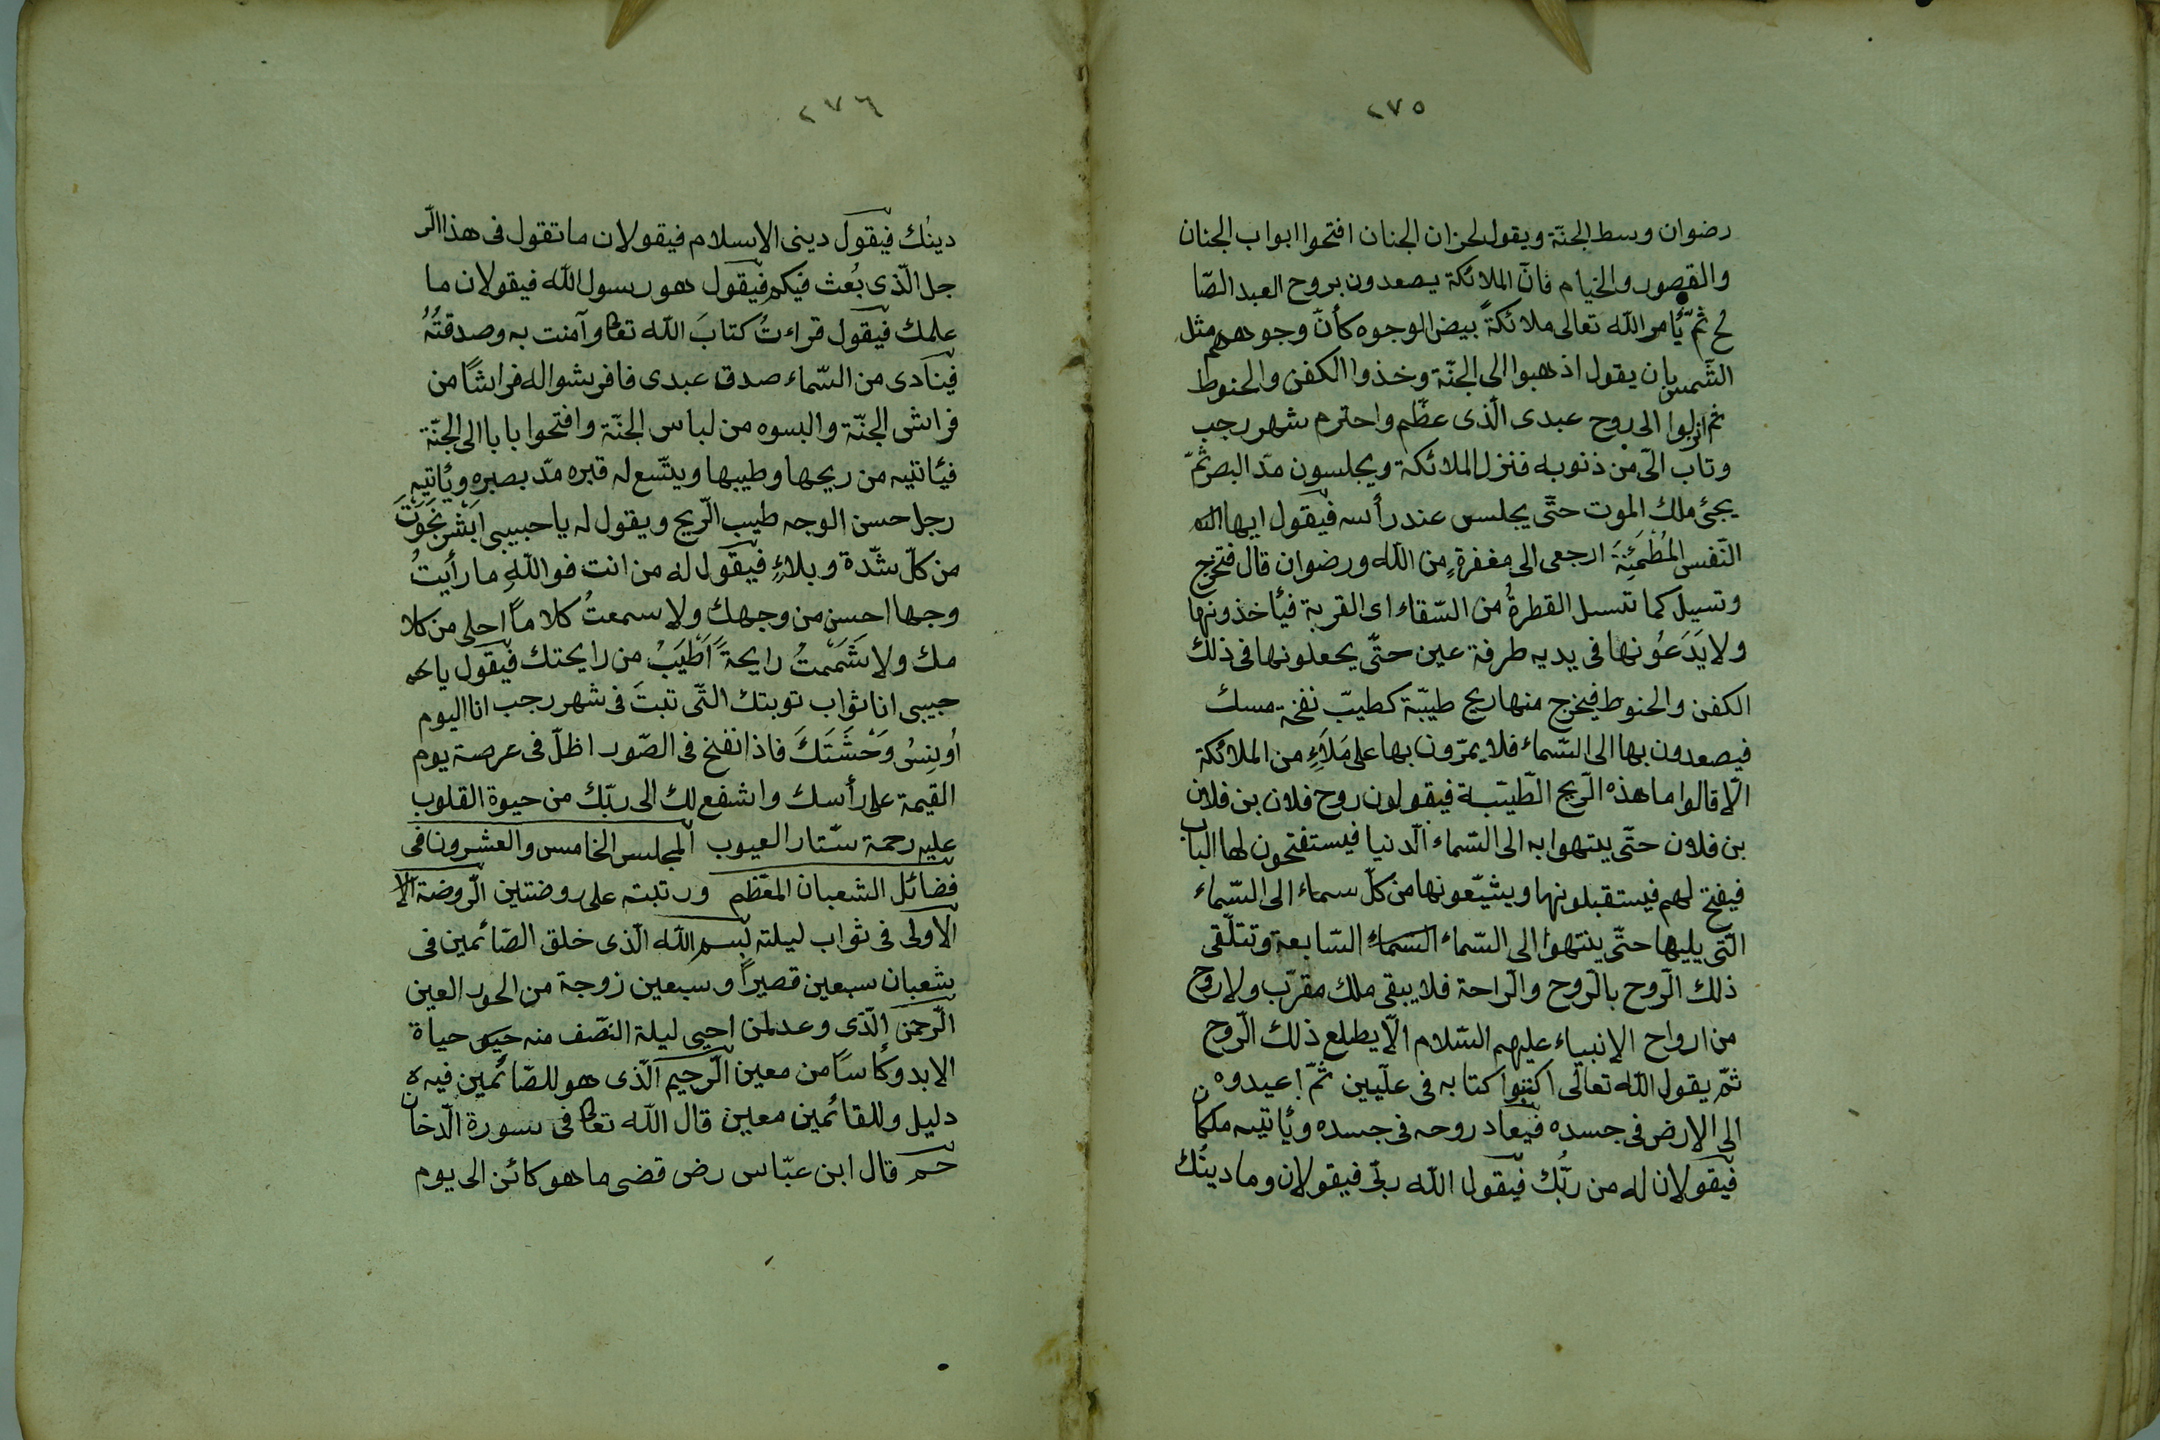 ٢٧٥
رضوان وسط الجنّة ويقول لخزان الجنان افتحوا ابواب الجنان
والقصور والخيام فانّ الملائكة يصعدون بروح العبد الصّا
لح ثمّ يُأمر الله تعالى ملائكةً بيض الوجوه كأنّ وجوههم مثل
الشّمس بان يقول اذهبوا الى الجنّة وخذوا الكفن والحنوط
ثم انزلوا الى روح عبدى الّذى عظّم واحترم شهر رجب
وتاب الىّ من ذنوبه فنزل الملائكة ويجلسون مدّ البصر ثمّ
يجئ ملك الموت حتّى يجلس عند رأسه فيقول ايها
النّفس المُطْمَئِنّةَ ارجعى الى مغفرةٍ من الله ورضوان قال فتخرج
وتسيل كما تسيل القطرةُ من السّقاء اى القربة فيأخذونها
ولا يَدَعُونها فى يديه طرفة عين حتّى يجعلونها فى ذلك
الكفن والحنوط فيخرج منها ريح طيبّة كطيبّ نفخة مسك
فيصعدون بها الى السّماء فلا يمرّون بها على مَلَاءٍ من الملائكة
الّا قالوا ما هذه الرّيح الطّيبّة فيقولون روح فلان بن فلان
بن فلان حتّى ينتهوا به الى السّماء الدّنيا فيستفتحون لها الباب
فيفتح لهم فيستقبلونها ويشيّعونها من كلّ سماء الى السّماء
الّتى يليها حتّى ينتهوا الى السّماء السّماء السّابعة وتتلّقى
ذلك الرّوح بالرّوح والرّاحة فلا يبقى ملك مقرّب ولا روح
من ارواح الانبياء عليهم السّلام الّا يطلع ذلك الرّوح
ثمّ يقول الله تعالى اكتبوا كتابه فى علّيين ثمّ اعيدوه
الى الارض فى جسده فيعاد روحه فى جسده ويأتيه ملكان
فيقولان له من ربُّك فيقول الله ربّى فيقولان وما دينُك
٢٧٦
دينُك فيقول دينى الاسلام فيقولان ما تقول فى هذا الرّ
جل الّذى بُعث فيكم فيقول هو رسول الله فيقولان ما
علمك فيقول قراءتُ كتابَ الله تعا وآمنت به وصدقتُهُ
فينادى من السّماء صدق عبدى فافرشوا له فراشًا من
فراش الجنّة والبسوه من لباس الجنّة وافتحوا بابا الى الجنّة
فيأتيه من ريحها وطيبها ويتّسع له قبره مدّ بصره ويأتيه
رجل حسن الوجه طيب الرّيح ويقول له يا حبيبى اَبْشْر نَجَوْتَ
من كلّ شّدة وبلاءٍ فيقول له من انت فواللّهِ ما رأيتُ
وجها احسن من وجهك ولا سمعتُ كلاماً احلى من كلا
مك ولا شَمَمتُ رايحةً اَطْيَبْ من رايحتك فيقول يا
حبيبى انا ثواب توبتك التّى تبتَ فى شهر رجب انا اليوم
اُونِسُ وَحْشَتَكَ فاذا نفخ فى الصّور اظلّ فى عرصة يوم
القيمة على رأسك واشفع لك الى ربّك من حيوة القلوب
عليه رحمة ستّار العيوب المجلس الخامس والعشرون فى
فضائل الشعبان المعّظم ورتبته على روضتين الرّوضة الا
الاولى فى ثواب ليلته بسم الله الّذى خلق الصّائمين فى
شعبان سبعين قصيراً وسبعين زوجة من الحور العين
الرّحمن الّذى وعد لمن احيى ليلة النصّف منه حيو حياة
الابد وكأسًا من معين الرّحيم الّذى هو للصّائمين فيه
دليل وللقائمين معين قال الله تعا فى سورة الّدخان
حم قال ابن عبّاس رض قضى ما هو كائن الى يوم